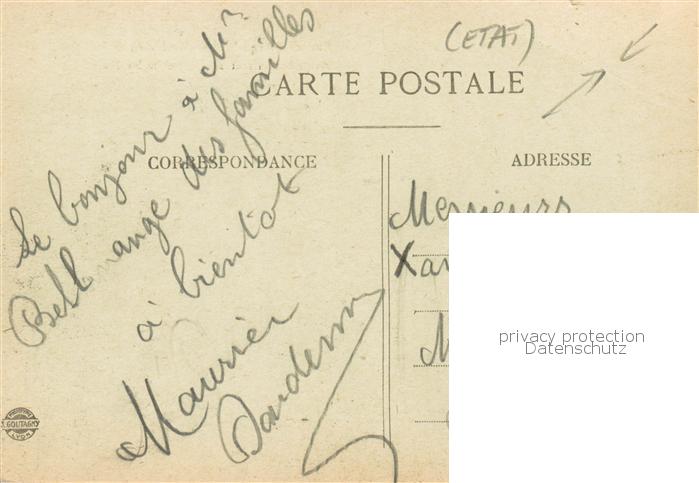 (ETAT)
CARTE POSTALE
CORRESPONDANCE
ADRESSE
Le bonjour à Mr
Bellmange des familles
à bientot
Maurice
Messieurs
Xav
M
privacy protection
Datenschutz
GOUTAGNY
LYON